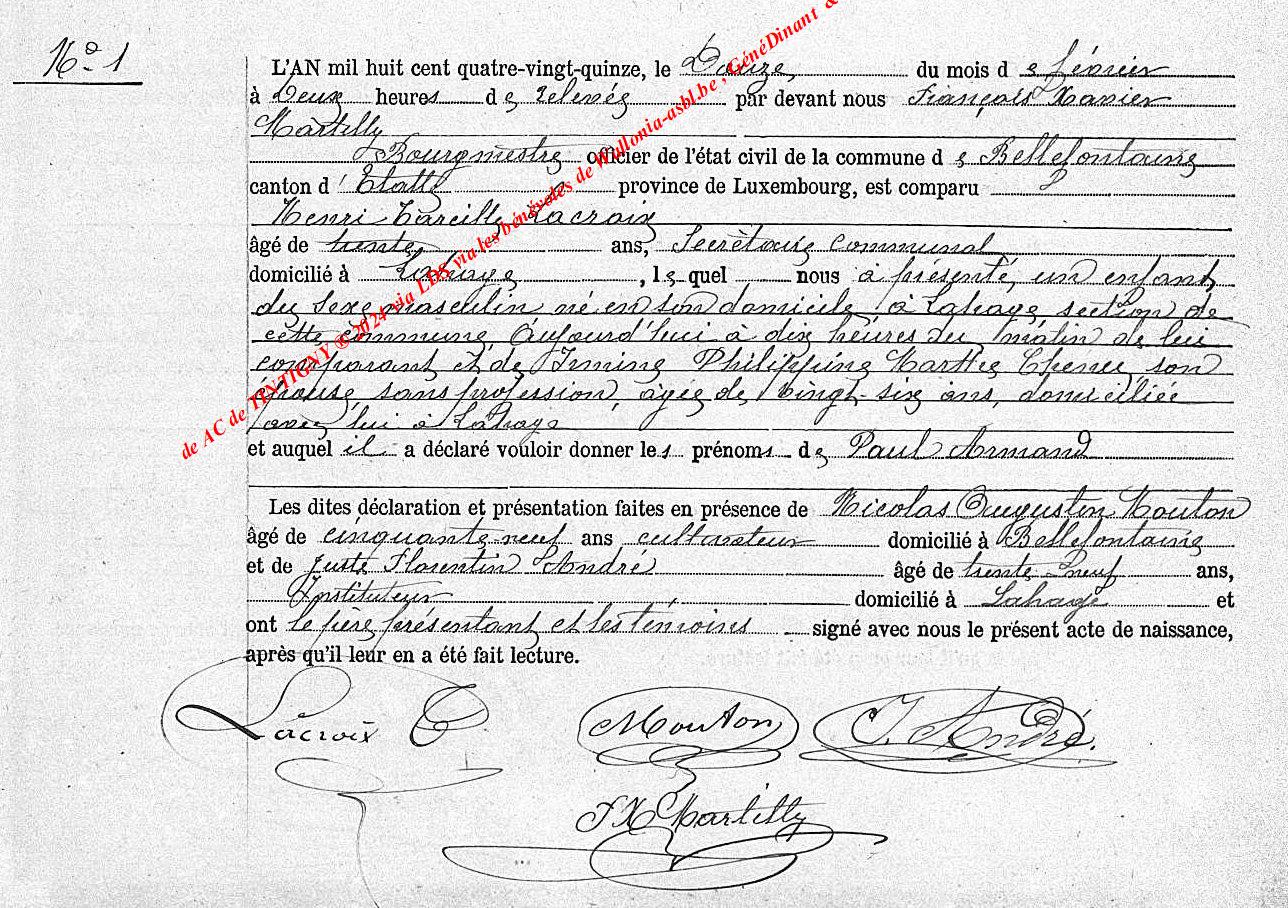 N° 1
L'AN mil huit cent quatre-vingt-quinze, le Douze, du mois de février
à Deux heures de relevée par devant nous François Xavier
Martilly
Bourgmestre officier de l'état civil de la commune de Bellefontaine
canton d'Etalle province de Luxembourg, est comparu
Henri Lacroix
âgé de trente ans, Secrètaire Communal
domicilié à Lahage, le quel nous à présenté, un enfant,
du sexe masculin né en son domicile, à Lahage, section de
cette commune, aujourd'hui à dix heures du matin de lui
comparant et de Irmine Philippine Marthe son
épouse, sans profession, agée de vingt-six ans, domiciliée
avec lui à Lahage
et auquel il a déclaré vouloir donner les prénoms de Paul Armand
Les dites déclaration et présentation faites en présence de Nicolas Augustin Mouton
âgé de cinquante neuf ans cultivateur domicilié à Bellefontaine
et de Juste Florentin André âgé de trente neuf ans,
Instituteur domicilié à Lahage et
ont le père présentant et les témoins signé avec nous le présent acte de naissance,
après qu'il leur en a été fait lecture.
Lacroix Mouton J. André.
FX Martilly
de AC de TINTIGNY ® 2024 via LDS via les bénévoles de Wallonia-asbl.be, GénéDinant &